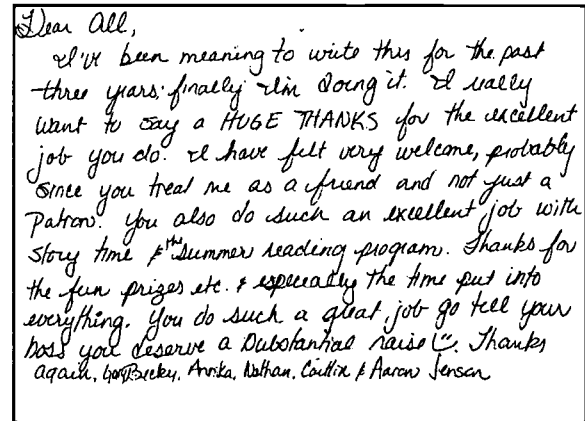 Dear All,
I've been meaning to write this for the past
three years; finally I'm doing it. I really
want to say a HUGE THANKS for the excellent
job you do. I have felt very welcome, probably
since you treat me as a friend and not just a
Patron. You also do such an excellent job with
story time & the summer reading program. Thanks for
the fun prizes etc. & especially the time put into
everything. You do such a great job go tell your
boss you deserve a substantial raise. Thanks
again, Becky, Annika, Nathan, Caitlin & Aaron Jensen